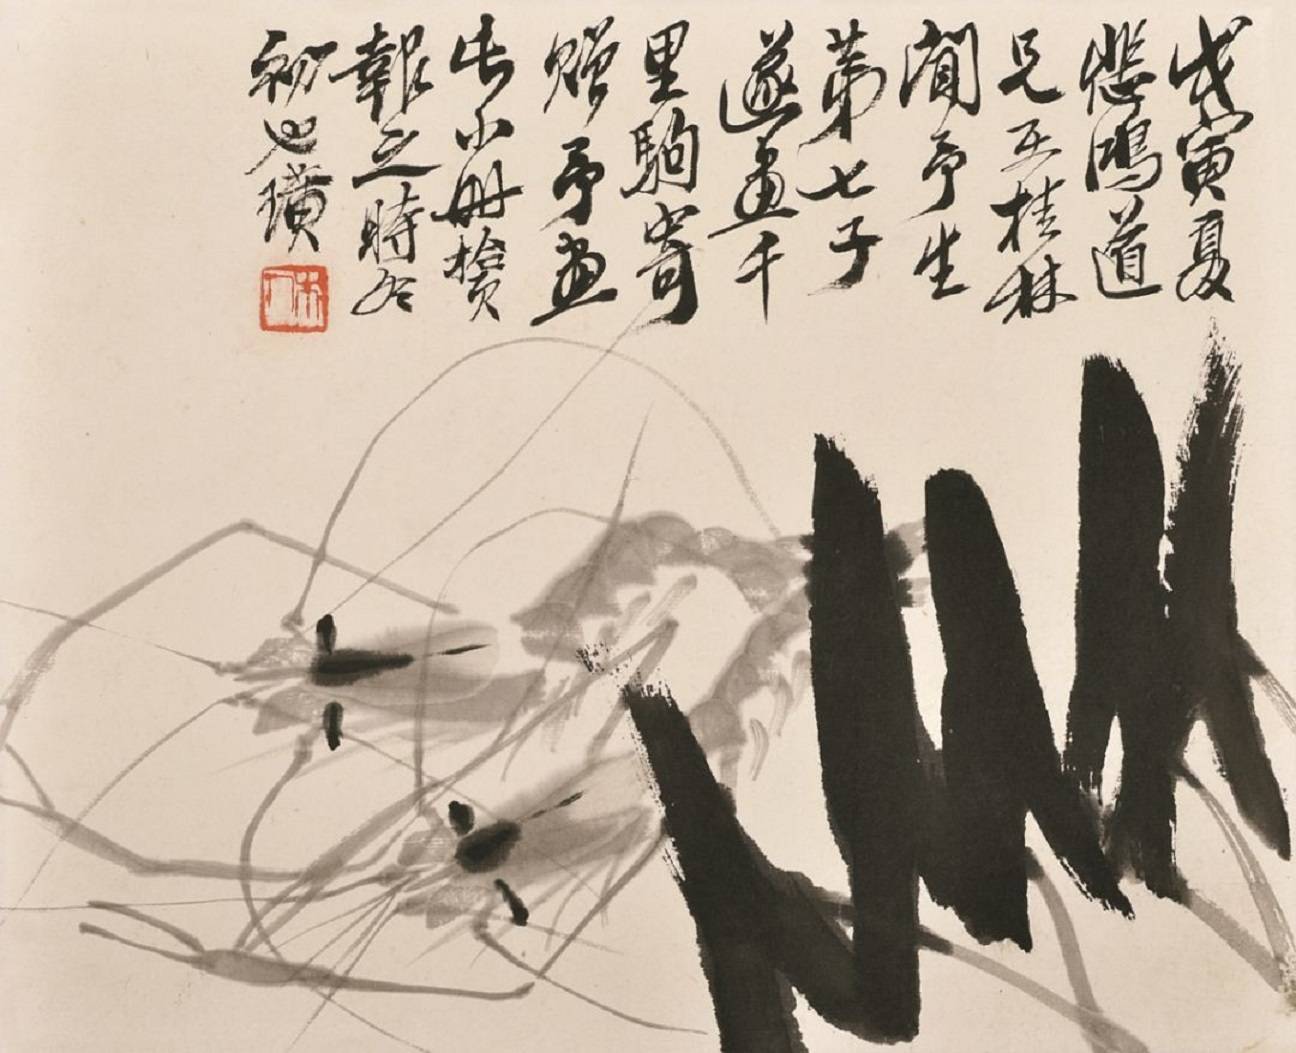 戊寅夏
悲鴻道
兄桂林
聞予生
第七子
遂畫千
里駒寄
贈予畫
此小冊
報之時冬
初也璜
木人